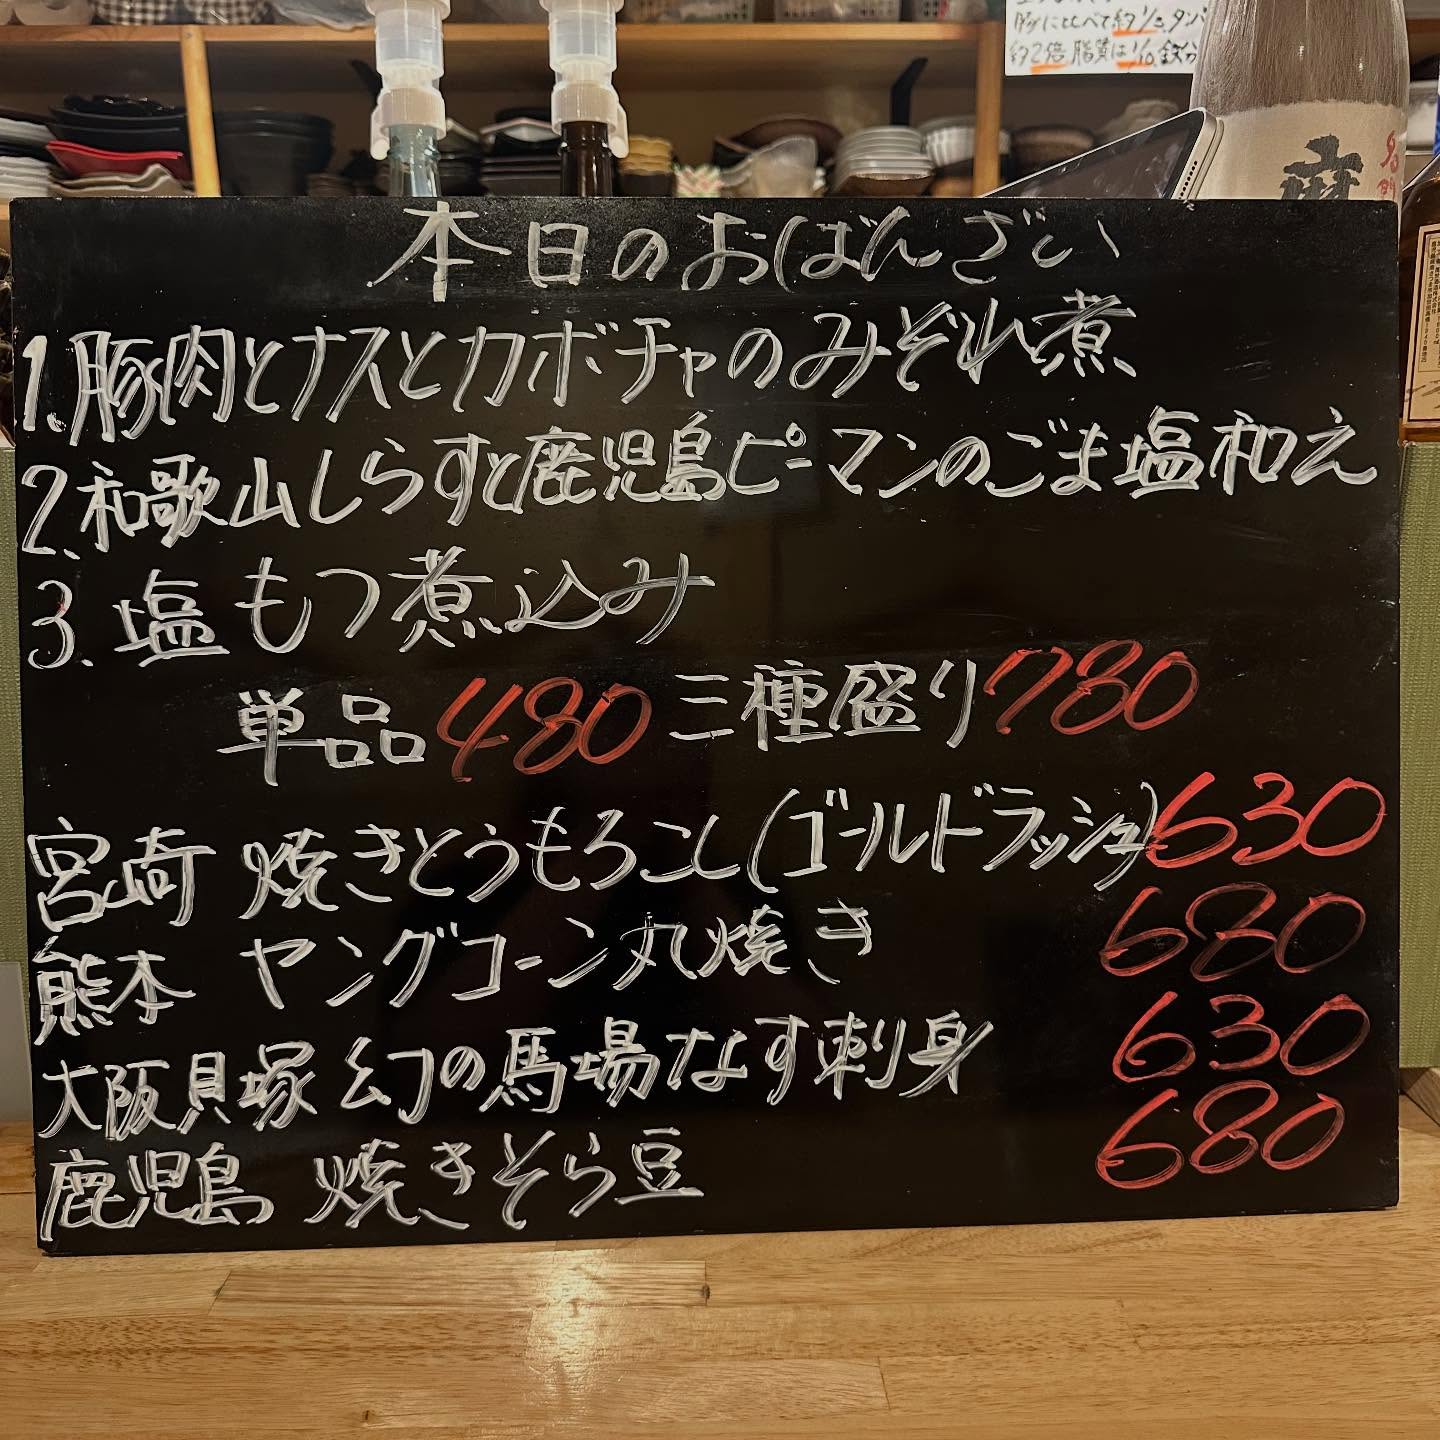 豚に比べて約1/3、タンパ
約2倍 脂質は1/10、鉄分
本日のおばんざい
1.豚肉とナスとカボチャのみぞれ煮
2.和歌山しらすと鹿児島ピーマンのごま塩和え
3.塩もつ煮込み
単品480 三種盛り780
宮崎 焼きとうもろこし(ゴールドラッシュ)630
熊本 ヤングコーン丸焼き 680
大阪貝塚 幻の馬場なす刺身 630
鹿児島 焼きそら豆 680